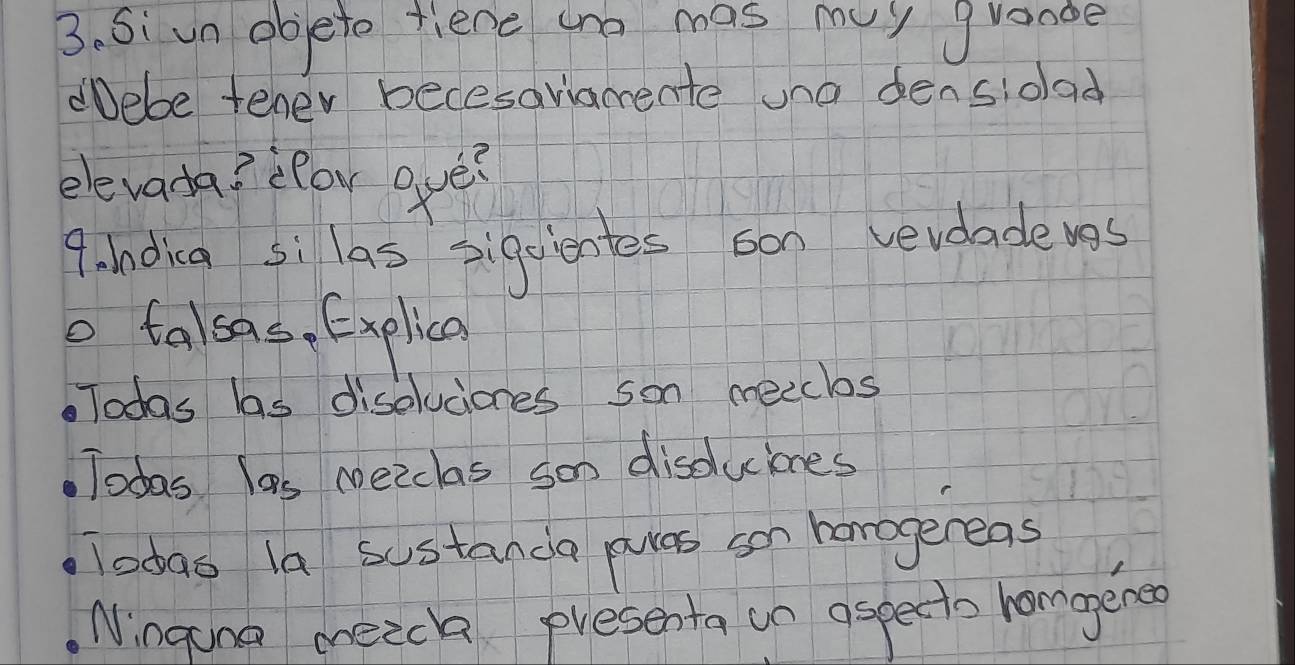 3. Si un objeto tiene una mas muy grande
¿Debe tener becesariamente una densidad
elevada? ¿Por qué?
9. Indica si las siguientes son verdaderas
o falsas. Explica
• Todas las disoluciones son mezclas
• Todas las mezclas son disoluciones
• Todas la sustancia puras son homogéneas
• Ninguna mezcla presenta un aspecto homogéneo